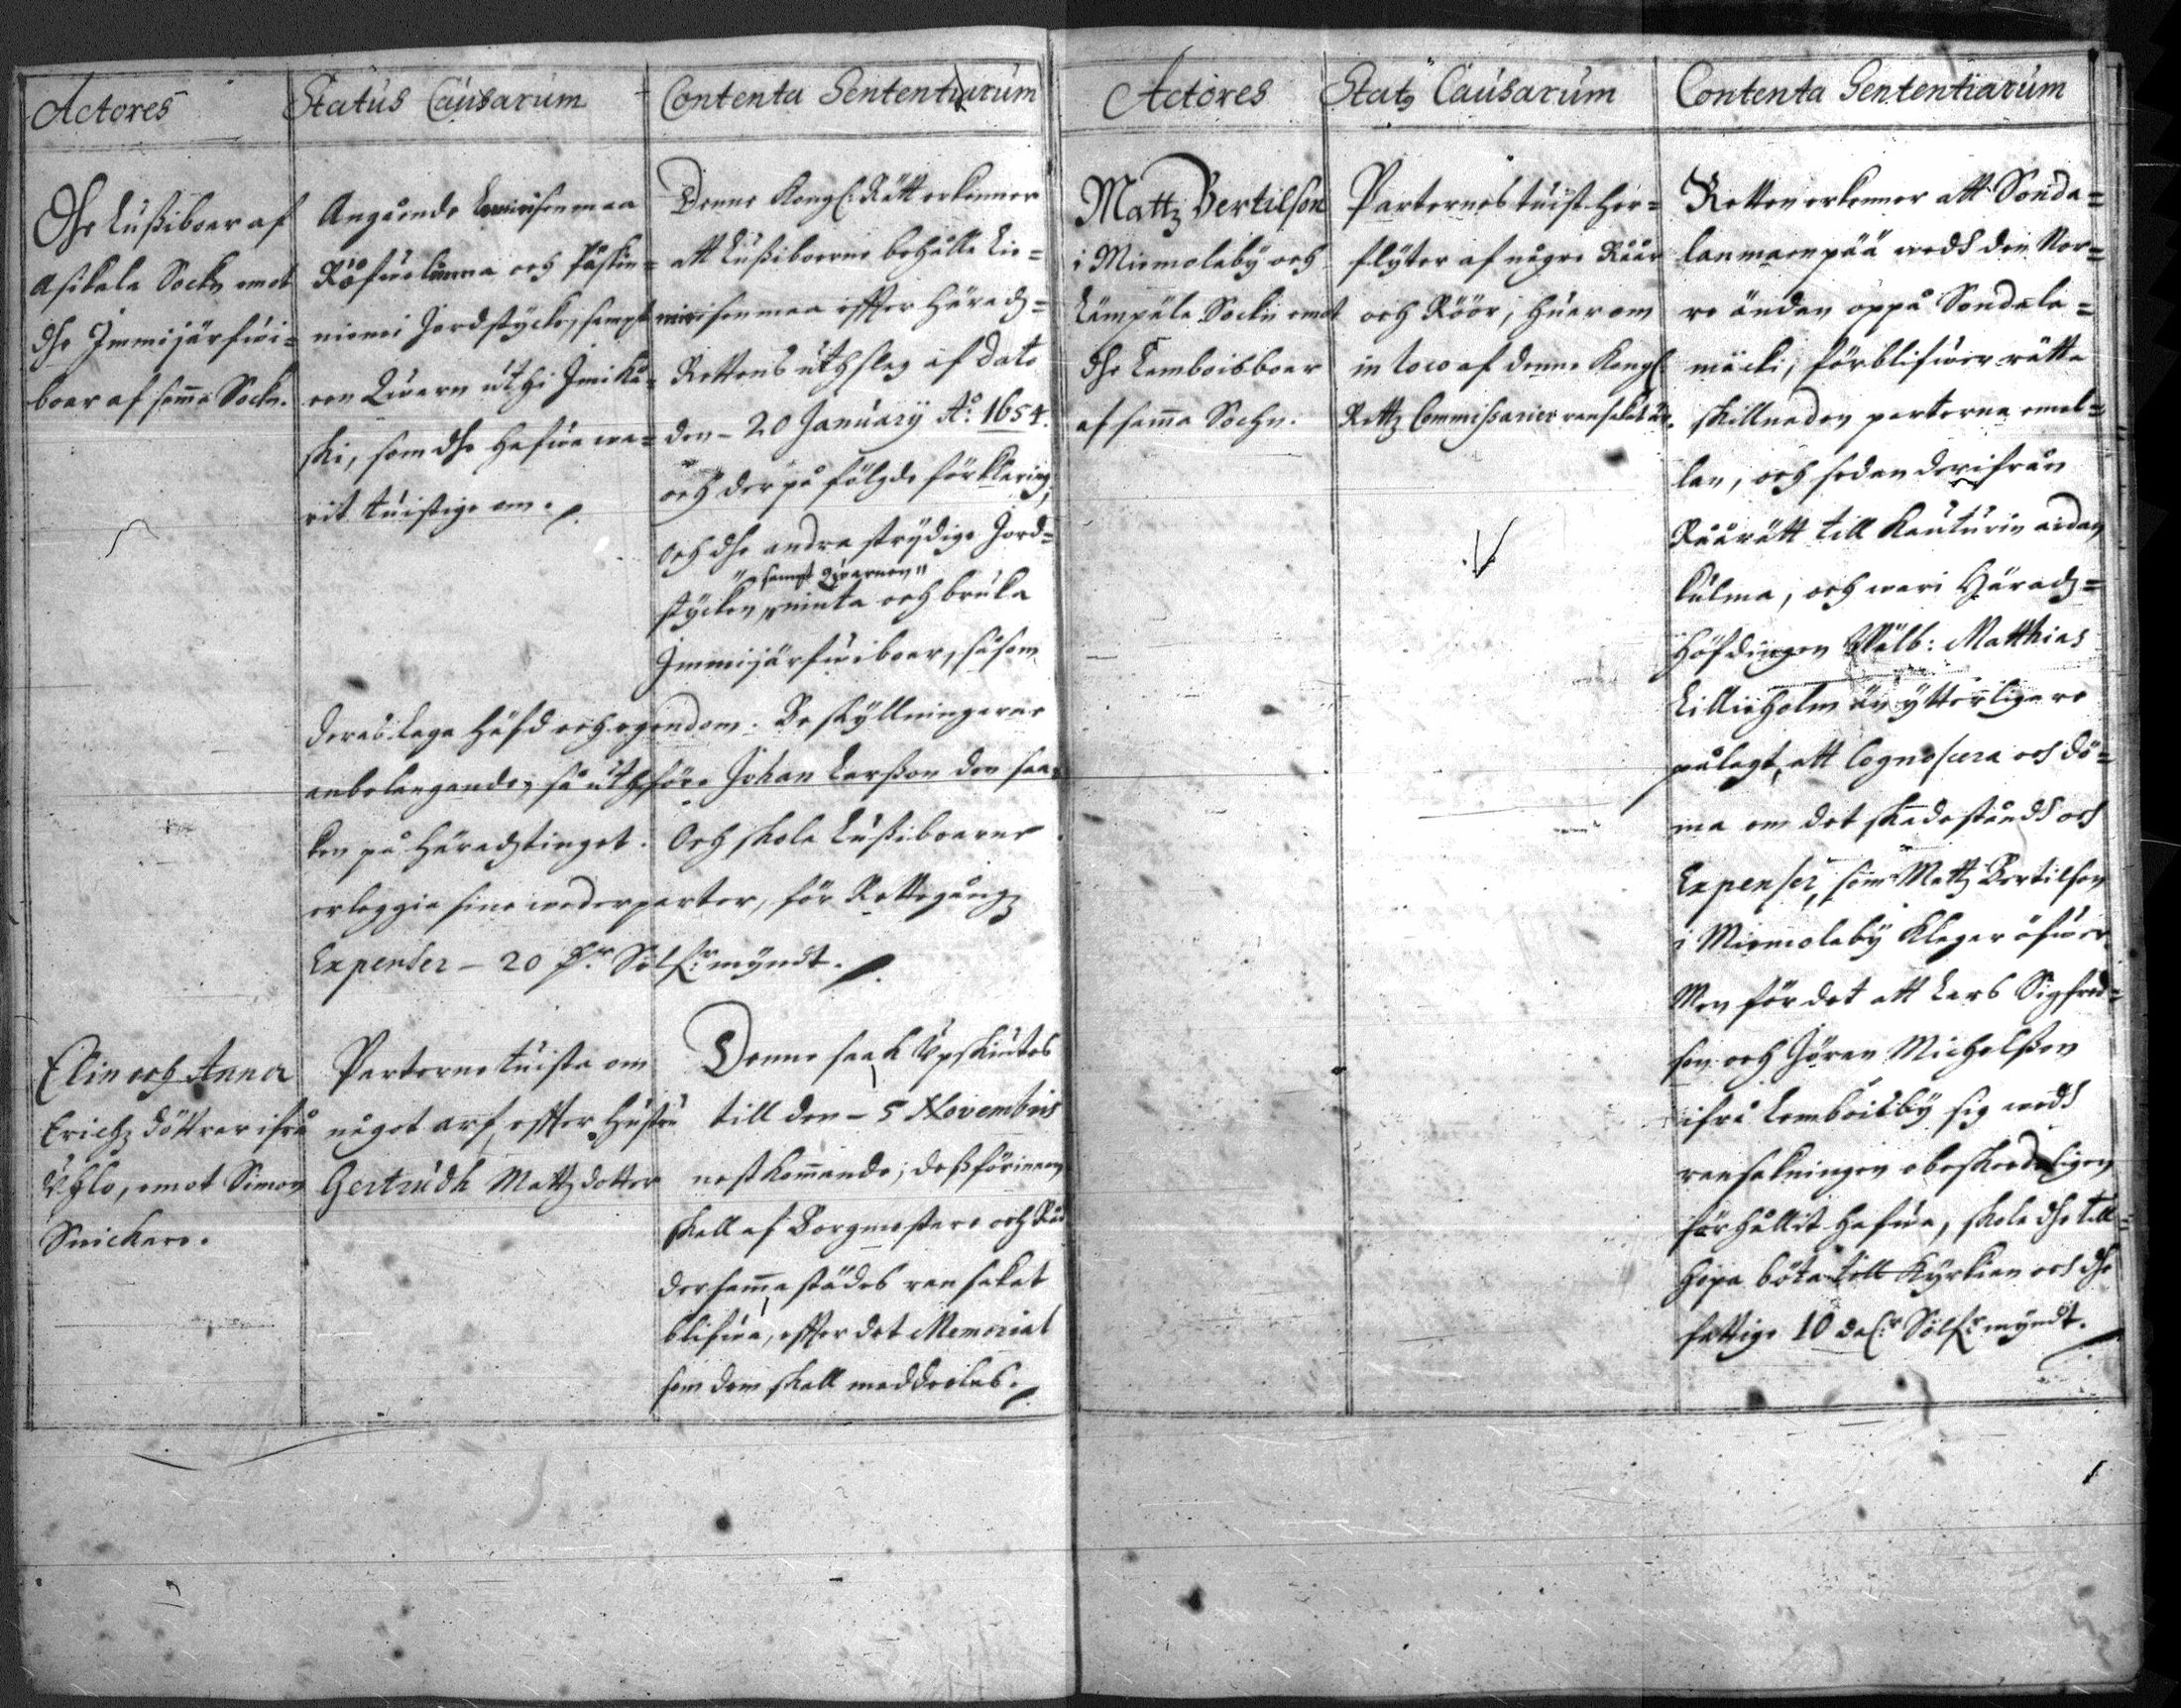 Actores
Status Causarum
Contenta Sententiarum
Dhe Lußiboer af
Asikala Sockn emot
dhe Immijärfwi=
boer af samma Sockn.
Angående
och Påskin=
niemi Jordstycke, sampt
een Qwarn uthi Imikå=
ski, som dhe hafwa wa=
rit twistige om.
Denne Kongl: Rätt erkenner
att Lußiboerne behålla Lie=
wisenmaa effter Häradz=
Rettens uthslag af dato
den - 20 January Ao: 1654.
och der på fölgde förklaring,
och dhe andra strydige Jord=
"sampt Qwarnen"
stycken, niuta och bruka
Immijärfwiboer, såsom
deras laga häfd och egendom. Beskyllningarne
anbelangande, så uthföre Johan Larßon den saa=
ken på Häradztinget. Och skola Lußiboerne
erleggia sine wederparter, för Rettegångz
Expenser - 20 Sölf:r myndt.
Elin och Anna
Erichz döttrar ifrå
Uhlo, emot Simon
Snickare.
Parterne twista om
något arf effter hustru
Gertrudh Mattzdotter
Denne saak Upskiutes
till den - 5 Novembris
nestkommande; deßförinnan
skall af Borgmestare och Råd
dersamma städes ransakat
blifwa, effter det Memorial
som dem skall meddeelas.
Actores
Stat9 Causarum
Contenta Sententiarum
Mattz Bertilson
i Miemolaby och
Lämpälä Sockn emot
dhe Lemboisboer
af samma Sochn.
Parternes twist her=
flyter af någre Råår
och Röör, huar om
in loco af denne Kongl:
Rettz Commissarier ransakat är.
Retten erkenner att Sonda=
lanmaenpää widh den Stor=
re ändan oppå Sondala=
mäcki, förblifwer rätta
skillnaden parterne emel=
lan, och sedan derifrån
Råårätt till Kauturin aidan
kulma, och ware Häradz=
höfdingen Wälb: Matthias
Lillieholm än ytterligare
pålagt, att Cognoscera och dö=
ma om det skadeståndh och
Expenser, som Mattz Bertilson
i Miemolaby klagar öfwer
Men för det att Lars Sigfred=
son och Jören Michelßon
ifrå Lemboisby sig widh
ransakningen obeskedeligen
förhållit hafwa, skola dhe till=
hopa böta till Kyrkian och dhe
fattige 10 dal:r Sölf:r myndt.